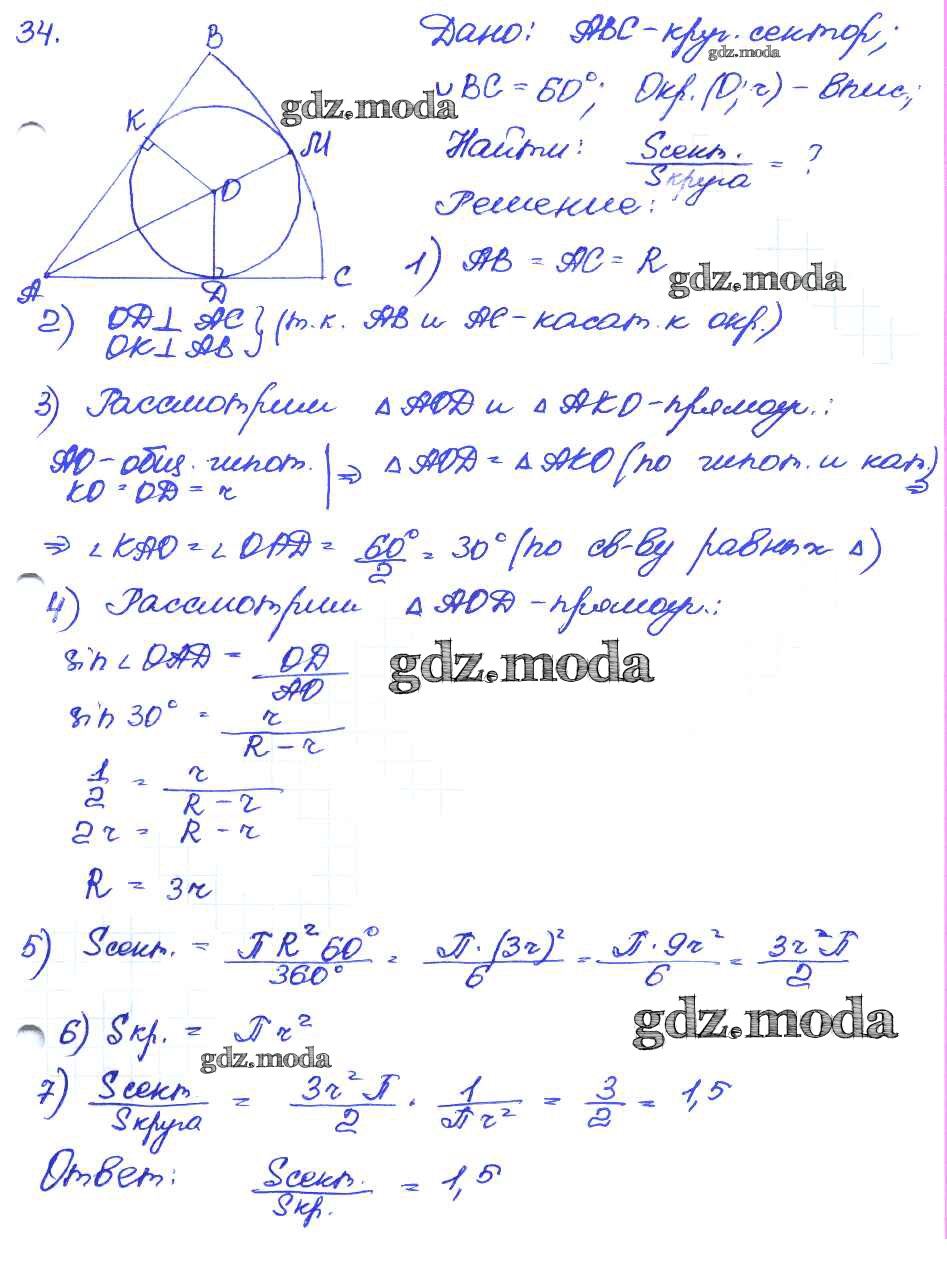 34.
Дано: ABC - круг. сектор;
gdz.moda
B
∪BC = 60°; Окр.(O; r) - впис;
gdz.moda
K
M
Найти: Sсект. / Sкруга = ?
O
Решение:
1) AB = AC = R
gdz.moda
A
D
C
2) OD ⊥ AC
OK ⊥ AB } (т.к. AB и AC - касат. к окр.)
3) Рассмотрим △AOD и △AKO - прямоуг.:
AO - общ. гипот.
KO = OD = r | ⇒ △AOD = △AKO (по гипот. и кат.) ⇒
⇒ ∠KAO = ∠OAD = 60°/2 = 30° (по св-ву равных △)
4) Рассмотрим △AOD - прямоуг.:
sin∠OAD = OD/AO
gdz.moda
sin 30° = r/(R - r)
1/2 = r/(R - r)
2r = R - r
R = 3r
5) Sсект. = ПR²60°/360° = П·(3r)²/6 = П·9r²/6 = 3r²П/2
6) Sкр. = Пr²
gdz.moda
gdz.moda
7) Sсект/Sкруга = 3r²П/2 · 1/Пr² = 3/2 = 1,5
Ответ: Sсект./Sкр. = 1,5